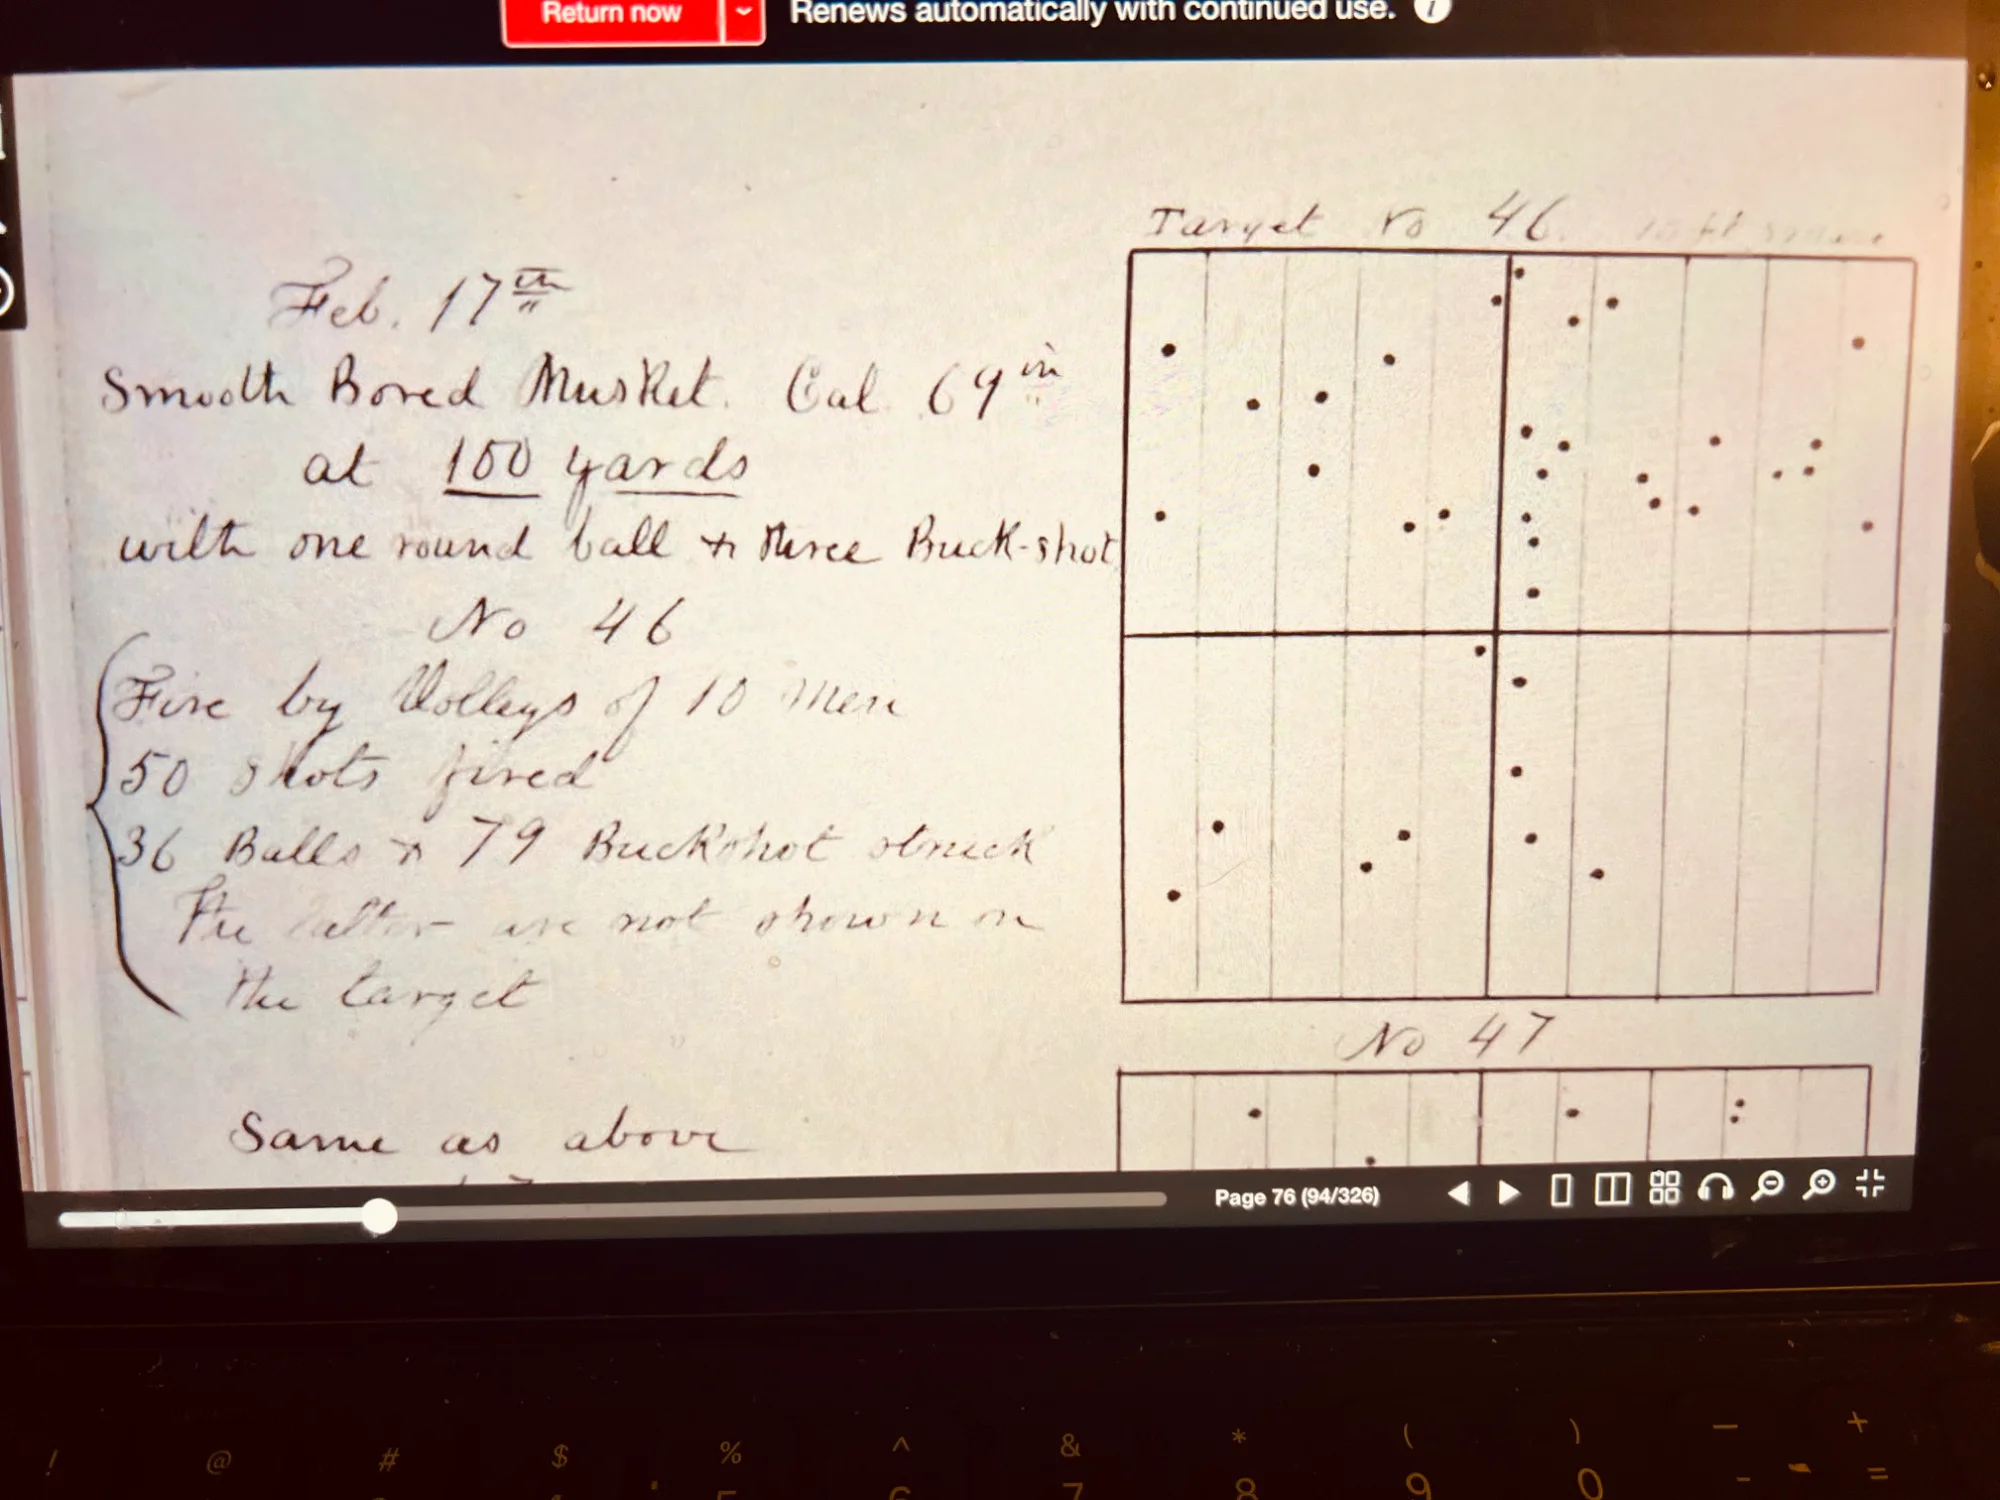 Return now
Renews automatically with continued use.
Target No 46. 10 ft square
Feb. 17th
Smooth Bored Musket. Cal .69 in
at 100 yards
with one round ball & three Buck-shot
No 46
Fire by Volleys of 10 Men
50 shots fired
36 Balls & 79 Buckshot struck
The latter are not shown on
the target
No 47
Same as above
Page 76 (94/326)
! @ # $ % ^ & * ( ) — +
7 8 9 0 - =